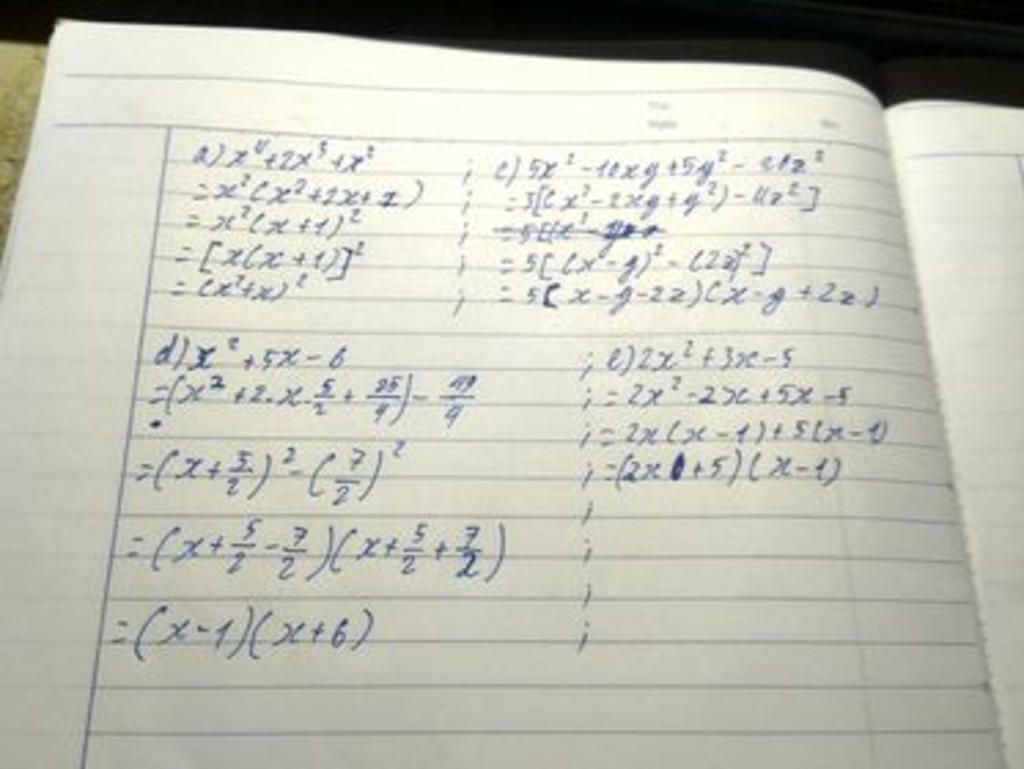 a) x⁴+2x³+x²
= x²(x²+2x+1)
= x²(x+1)²
= [x(x+1)]²
= (x²+x)²
; c) 5x²-10xy+5y²-20z²
; = 5[(x²-2xy+y²)-4z²]
;
; = 5[(x-y)²-(2z)²]
; = 5(x-y-2z)(x-y+2z)
d) x²+5x-6
= (x²+2.x.5/2+25/4)-49/4
= (x+5/2)²-(7/2)²
= (x+5/2-7/2)(x+5/2+7/2)
= (x-1)(x+6)
; e) 2x²+3x-5
; = 2x²-2x+5x-5
; = 2x(x-1)+5(x-1)
; = (2x+5)(x-1)
;
;
;
;